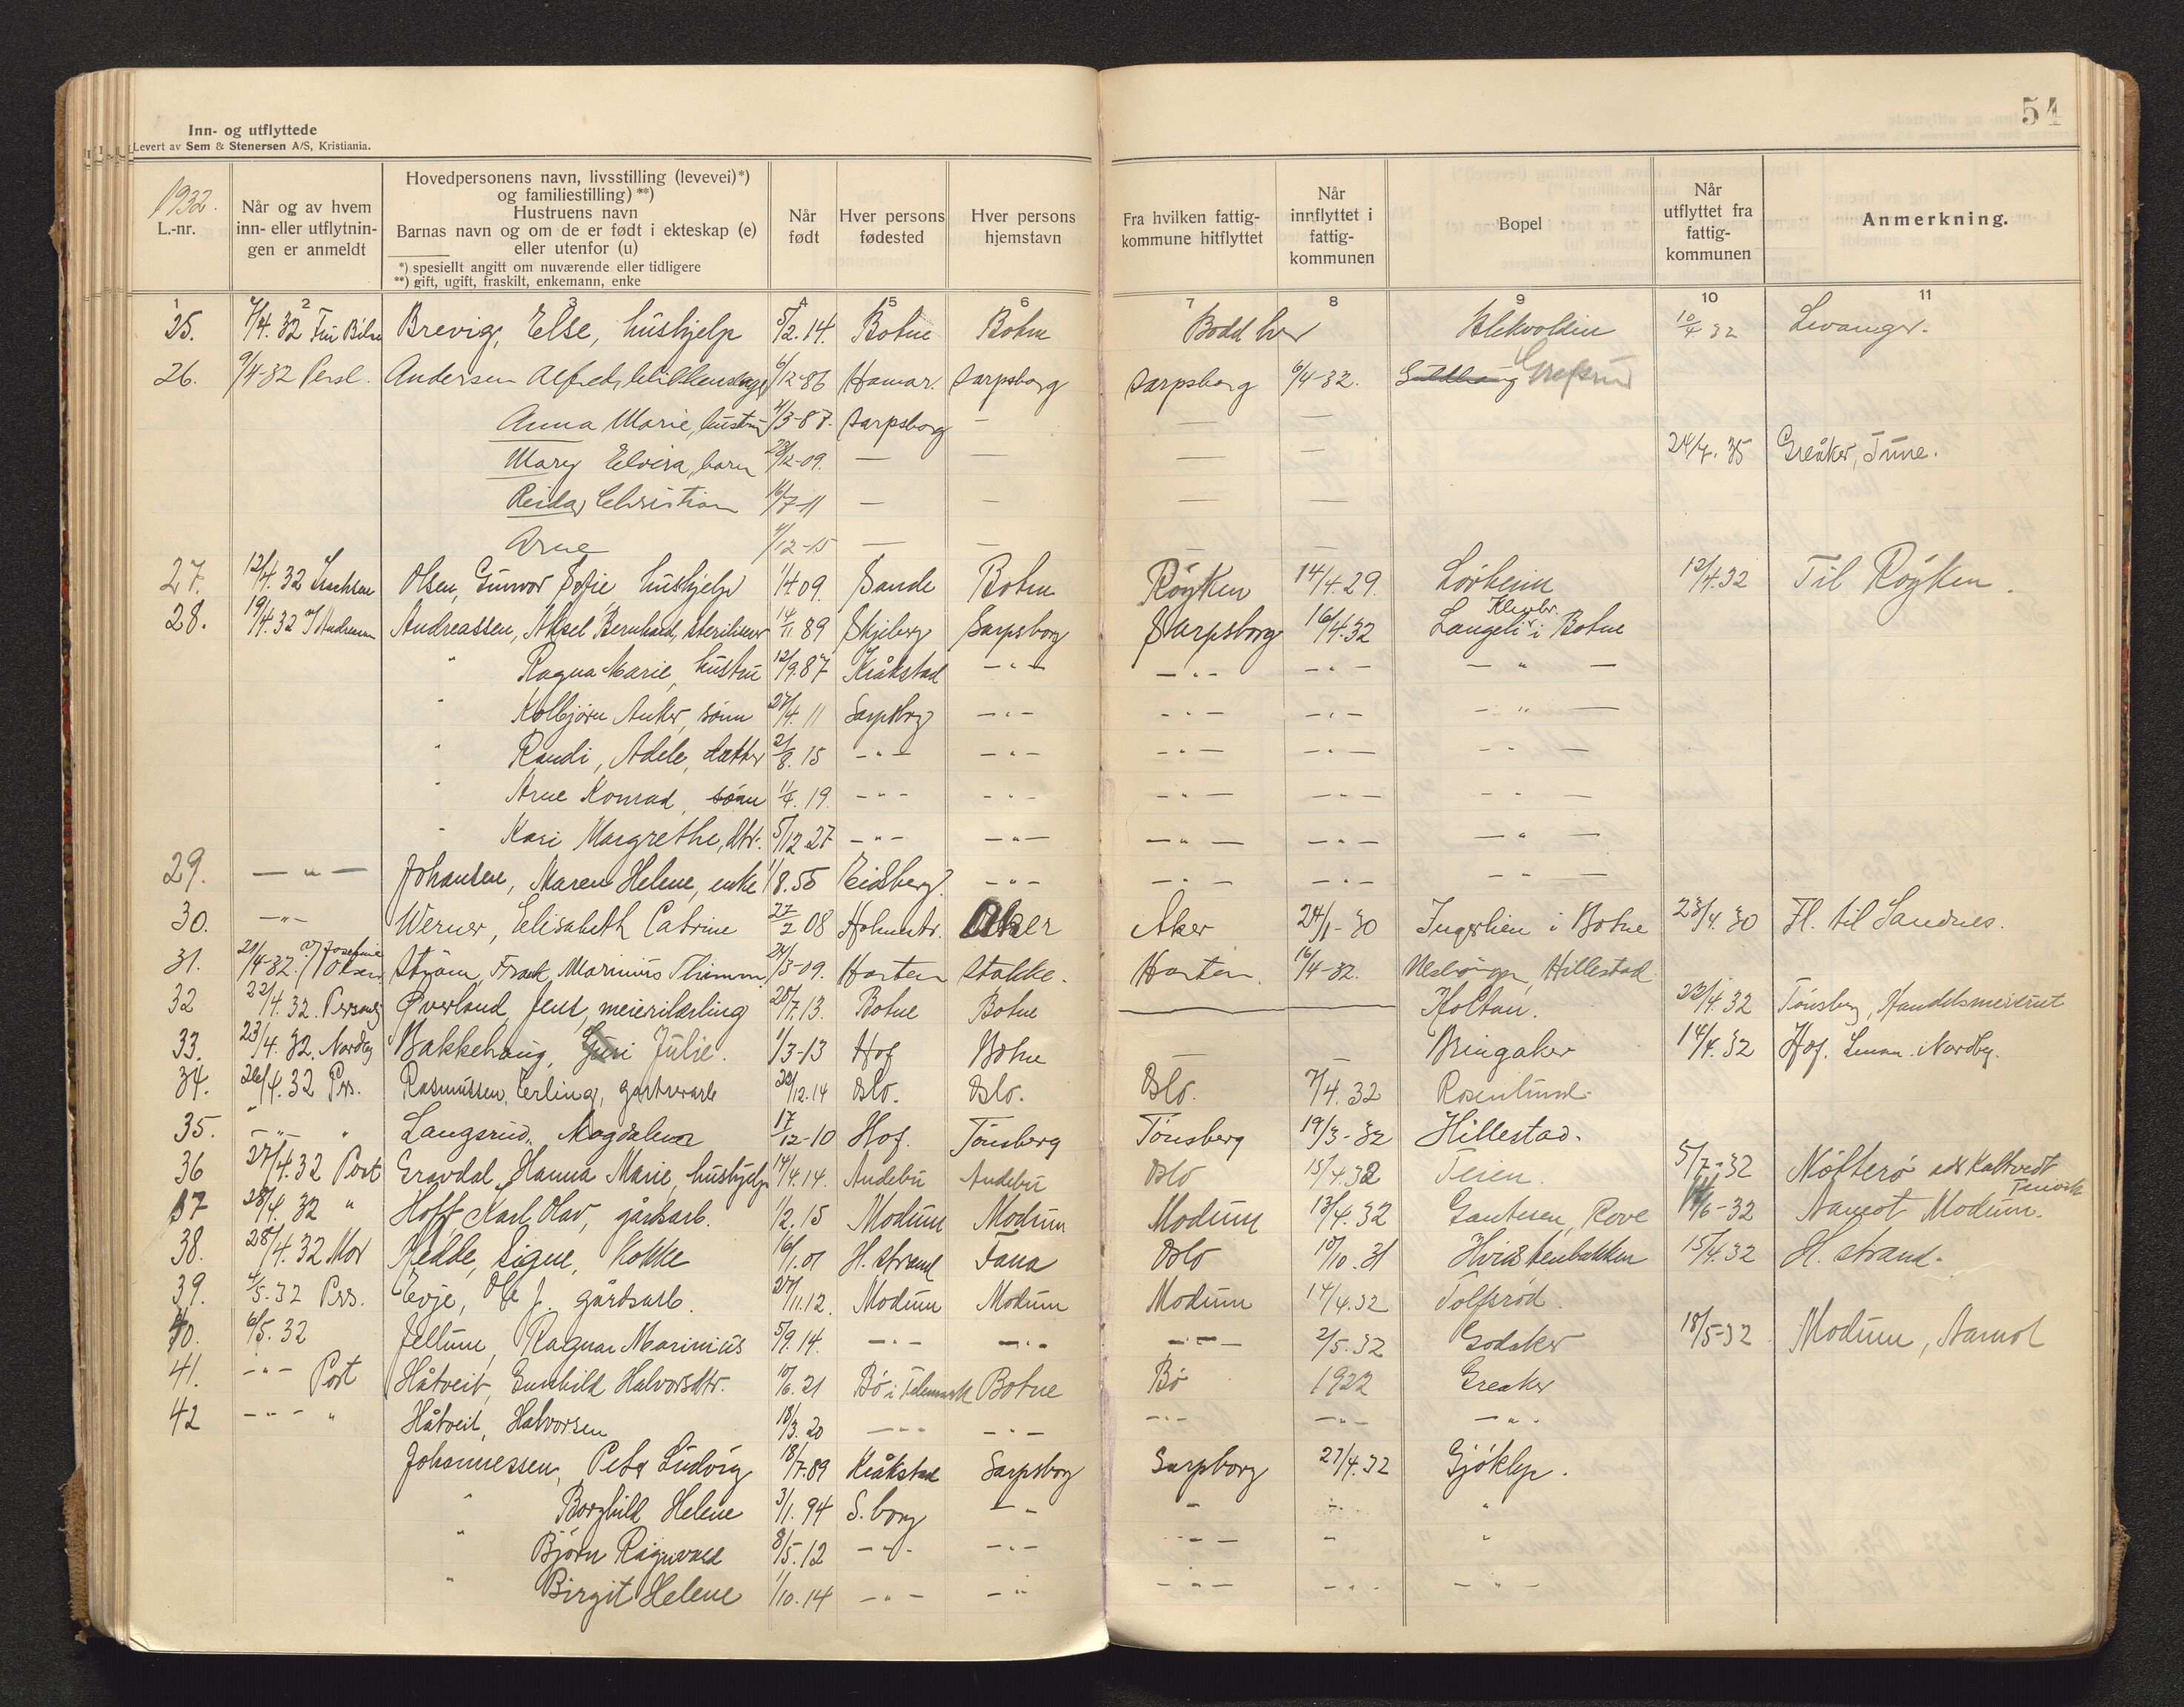 54
Inn- og utflyttede
Levert av Sem & Stenersen A/S, Kristiania.
1932.
L.-nr.
Når og av hvem inn- eller utflytnin- gen er anmeldt
Hovedpersonens navn, livsstilling (levevei)*) og familiestilling)**) Hustruens navn Barnas navn og om de er født i ekteskap (e) eller utenfor (u)
*) spesiellt angitt om nuværende eller tidligere
**) gift, ugift, fraskilt, enkemann, enke
Når født
Hver persons fødested
Hver persons hjemstavn
Fra hvilken fattig- kommune hitflyttet
Når innflyttet i fattig- kommunen
Bopel
Når utflyttet fra fattig- kommunen
Anmerkning.
1 2 3 4 5 6 7 8 9 10 11
25. 7/4. 32 Brevig, Else, hushjelp 5/2. 14. Botne Botne Bodd her 10/4 32 Levanger.
26. 9/4-32 Persl. Andersen Alfred, 6/12-86 Hamar. Sarpsborg Sarpsborg 6/4-32.
Anna Marie, hustru /3-87. Sarpsborg — — —
Mary Elvira, barn 28/12-09. — — — — 24/7. 35 Greåker, Tune.
Reidar Christian 16/7-11 — — — —
Arne /12-15 — — — —
27. 12/4. 32 Olsen, Gunvor Sofie hushjelp 1/4 09. Sande Botne Røyken 14/4. 29. Lövheim 12/4.32 Til Røyken.
28. 19/4. 32 Andreassen, Aksel Bernhard, 14/11 89 Skjeberg Sarpsborg Sarpsborg 16/4.32 Langeli i Botne
" Ragna Marie, hustru 12/9.87 Kråkstad — " — — " — — " — — " —
" Kolbjørn Anker, sönn 27/4. 11 Sarpsborg — " — — " — — " — — " —
" Randi, Adele, datter 2/8. 15 — " — — " — — " — — " — — " —
" Arne Konrad, sönn 1/4. 19. — " — — " — — " — — " — — " —
" Kari Margrethe, dtr. 5/12 27 — " — — " — — " — — " — — " —
29. — " — Johansen, Maren Helene, enke 1/8.55 Eidsberg. — " — — " — — " — — " —
30. — " — Werner, Elisabeth Catrine 27/2 08 Holmestr. Aker Aker 24/1-30 Ingerlien i Botne 23/4. 30 Fl. til Sandnes.
31. 21/4-32. v/ Josefine Olsen Strøm, Frank Marinius 24/3-09. Horten Stokke. Horten 16/4-32. Hillestad
32 22/4. 32. Øverland, Jens, meierilærling 28/7. 13. Botne Botne — Holtan. 22/4. 32 Tönsberg, Handelsmeieriet
33. 23/4. 32. Nordby Bakkehaug, Julie. 1/3-13 Hof Botne — — Bringaker 14/4. 32 Hof. Nordby.
34. 26/4. 32 Prs. Rasmussen, Erling, gartnerarb 22/12.14 Oslo. Oslo. Oslo. 7/4. 32 Rosenlund.
35. — " — " Langsrud, Magdalena 17/12-10 Hof. Tönsberg Tönsberg 19/3-32 Hillestad.
36 27/4.32 Post Gravdal, Hanna Marie, hushjelp 14/4.14. Andebu Andebu Oslo 15/4.32 Teien. 5/7-32 Nötterö
37 28/4. 32 " Hoff, Karl Olav, gårdsarb. 1/2. 15 Modum Modum Modum 13/4. 32 Gautesen, Rove /6-32 Aamot Modum.
38. 28/4. 32 Mor Redde, Signe, Kokke 16/1. 01 H. strand Tana Oslo 10/10. 31 15/4.32 H. strand.
39. 4/5. 32 Prs. Evje, Ole J. gårdsarb. 27/11.12. Modum Modum Modum 14/4.32 Tolfsrød.
40. 6/5. 32 Jellum, Ragnar Marinius 5/9. 14. — " — — " — — " — 2/5. 32 Godaker 18/5-32 Modum, Aamot
41. — " — Post Håtveit, Gunhild Halvorsdtr. 10/6. 21 Bø i Telemark Botne Bø 1922 Greaker
42 — " — " Håtveit, Halvorsen 18/3. 20 — " — — " — — " — — " — — " —
Johannessen, Peter Ludvig 18/7.89 Kråkstad Sarpsborg Sarpborg 27/4.32 Gjöklep.
" Borghild Helene 3/1. 94 S. borg — " — " — "
" Björn Ragnvald 8/5. 12 — " — — " — — " — " "
" Birgit Helene 1/10. 14 — " — — " — — " — — " — — " —